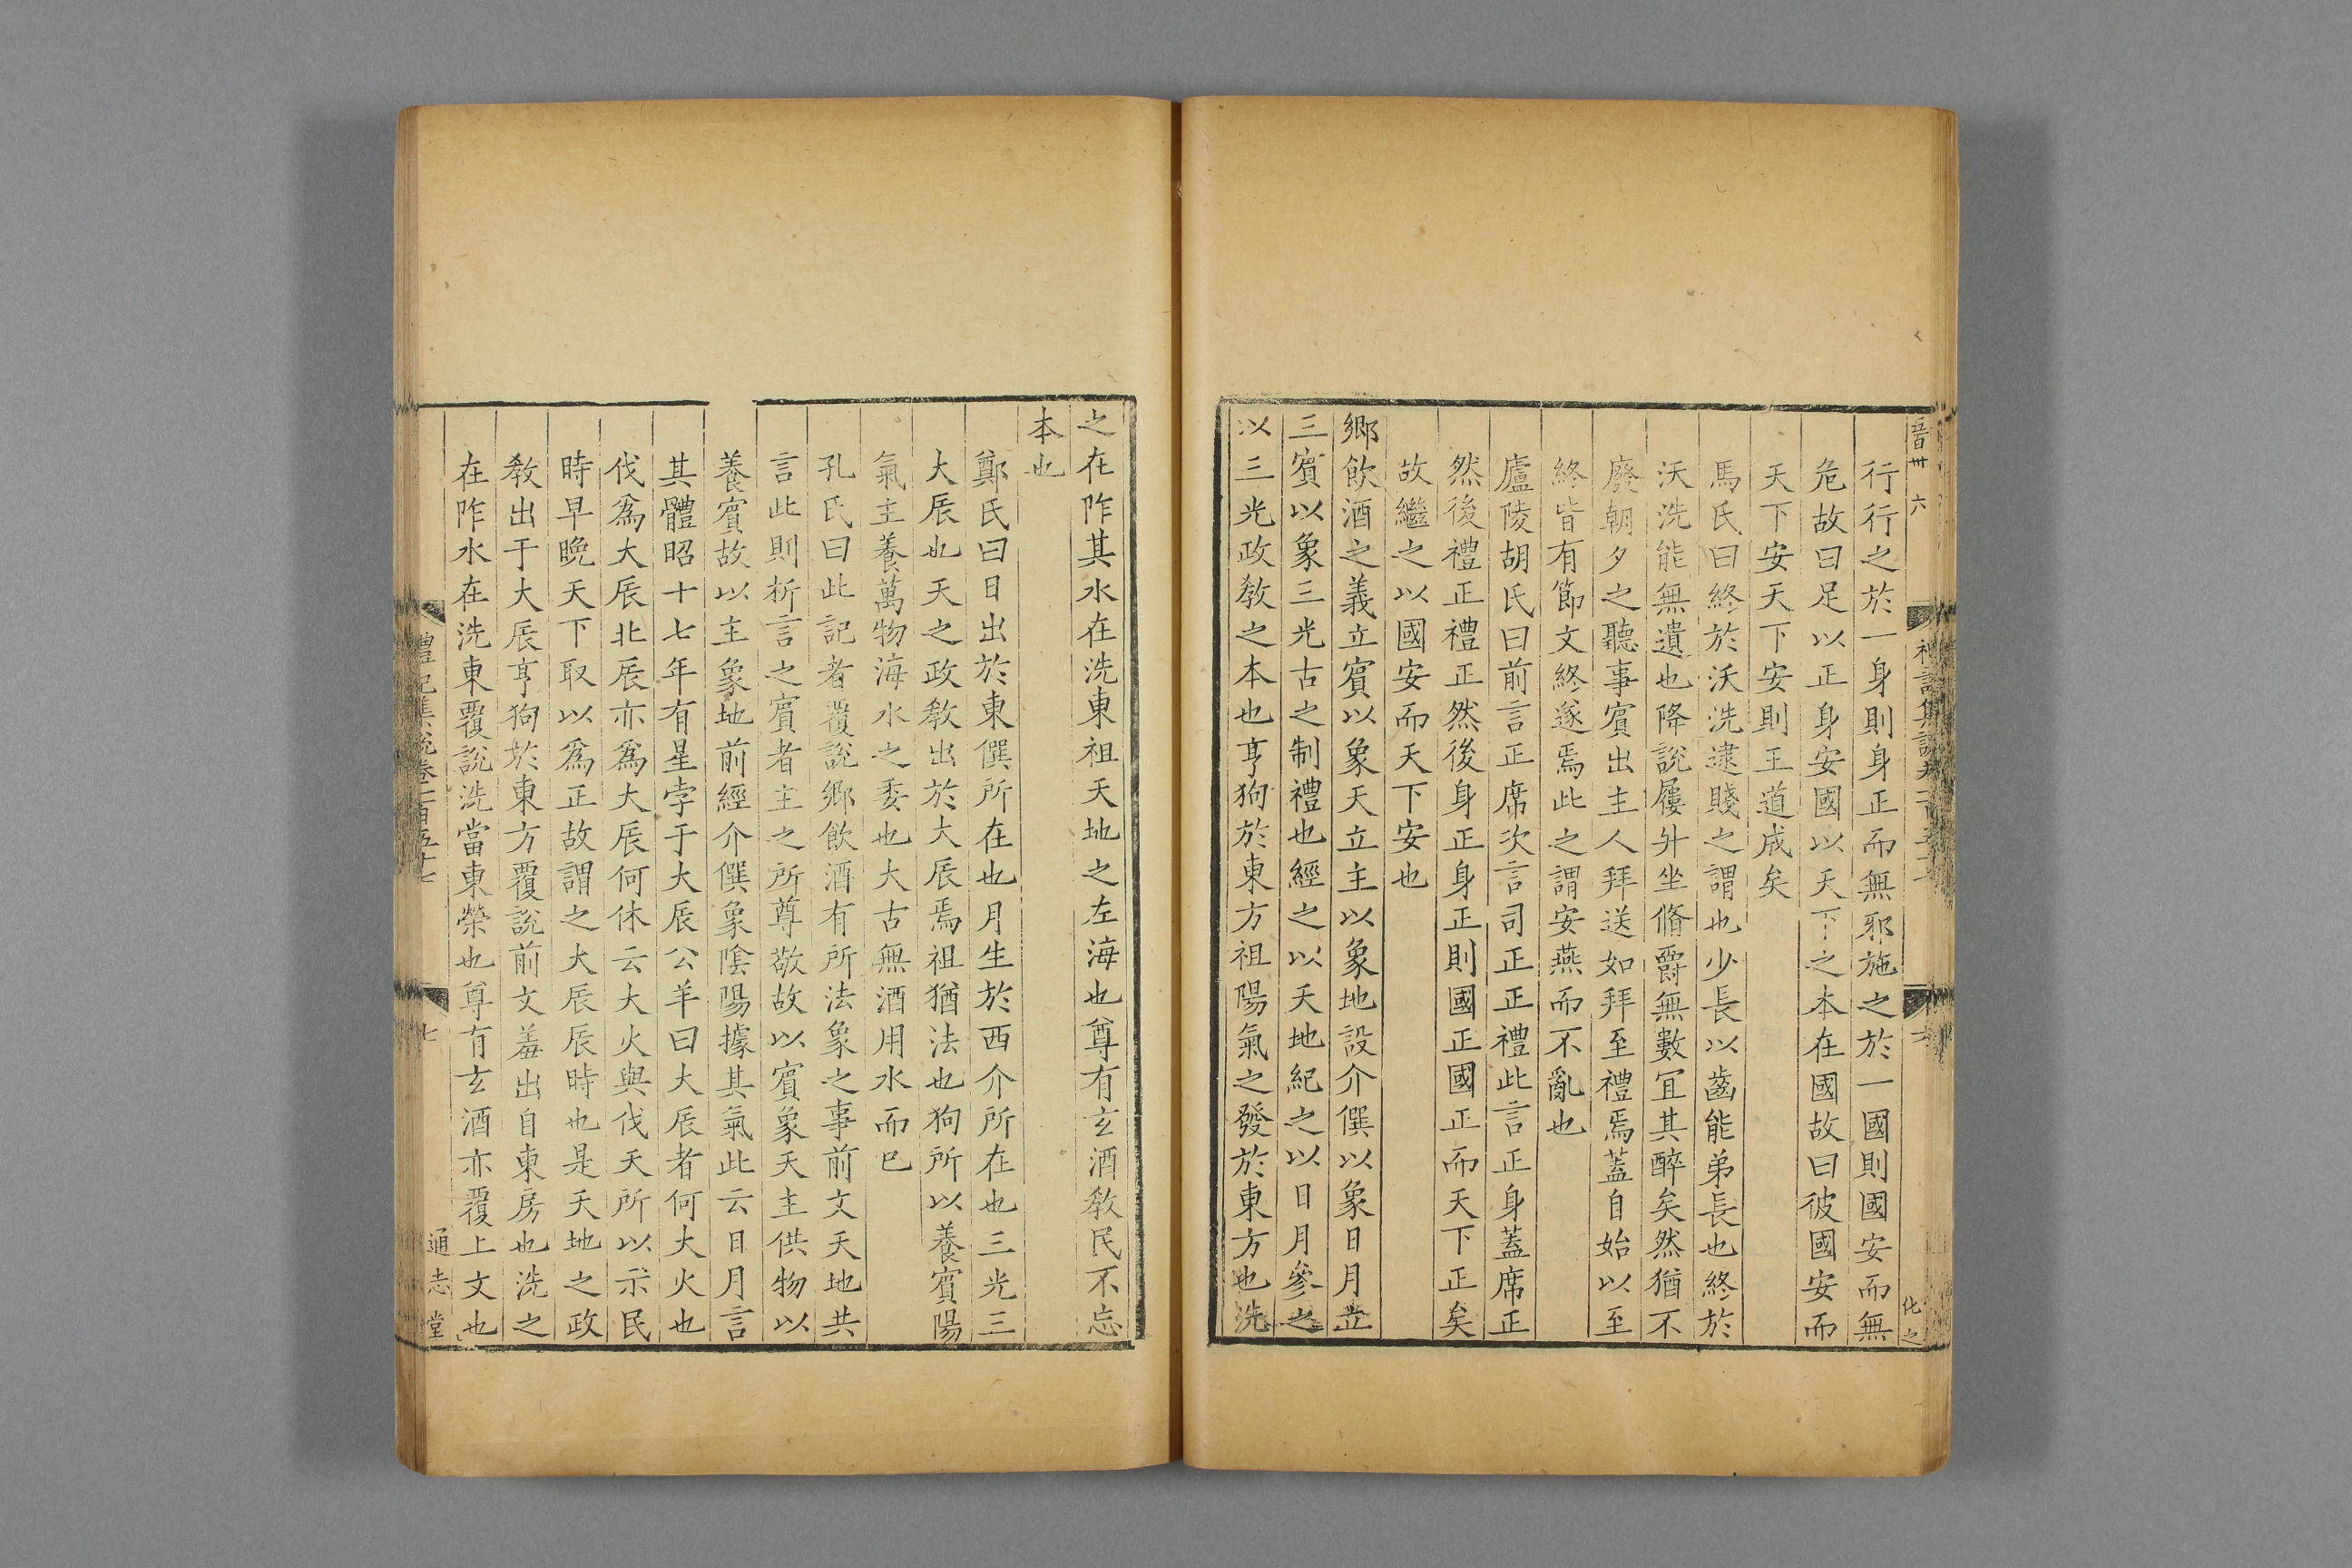 行行之於一身則身正而無邪施之於一國則國安而無
危故曰足以正身安國以天下之本在國故曰彼國安而
天下安天下安則王道成矣
馬氏曰終於沃洗逮賤之謂也少長以齒能弟長也終於
沃洗能無遺也降說屨升坐脩爵無數冝其醉矣然猶不
廢朝夕之聽事賓出主人拜送如拜至禮焉蓋自始以至
終皆有節文終遂焉此之謂安燕而不亂也
廬陵胡氏曰前言正席次言司正正禮此言正身蓋席正
然後禮正禮正然後身正身正則國正國正而天下正矣
故繼之以國安而天下安也
鄉飲酒之義立賓以象天立主以象地設介僎以象日月立
三賓以象三光古之制禮也經之以天地紀之以日月參之
以三光政敎之本也亨狗於東方祖陽氣之發於東方也洗
之在阼其水在洗東祖天地之左海也尊有玄酒敎民不忘
本也
鄭氏曰日出於東僎所在也月生於西介所在也三光三
大辰也天之政敎出於大辰焉祖猶法也狗所以養賓陽
氣主養萬物海水之委也大古無酒用水而已
孔氏曰此記者覆說鄉飲酒有所法象之事前文天地共
言此則析言之賓者主之所尊敬故以賓象天主供物以
養賓故以主象地前經介僎象陰陽據其氣此云日月言
其體昭十七年有星孛于大辰公羊曰大辰者何大火也
伐爲大辰北辰亦爲大辰何休云大火與伐天所以示民
時早晚天下取以爲正故謂之大辰辰時也是天地之政
敎出于大辰亨狗於東方覆說前文羞出自東房也洗之
在阼水在洗東覆說洗當東榮也尊有玄酒亦覆上文也
禮記集說卷一百五十七
七
通志堂